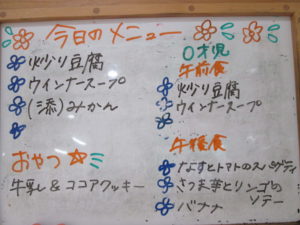 今日のメニュー
炒り豆腐
ウインナースープ
(添)みかん
おやつ
牛乳 & ココアクッキー
0才児
午前食
炒り豆腐
ウインナースープ
午後食
なすとトマトのスパゲティ
さつま芋とリンゴの
ソテー
バナナ